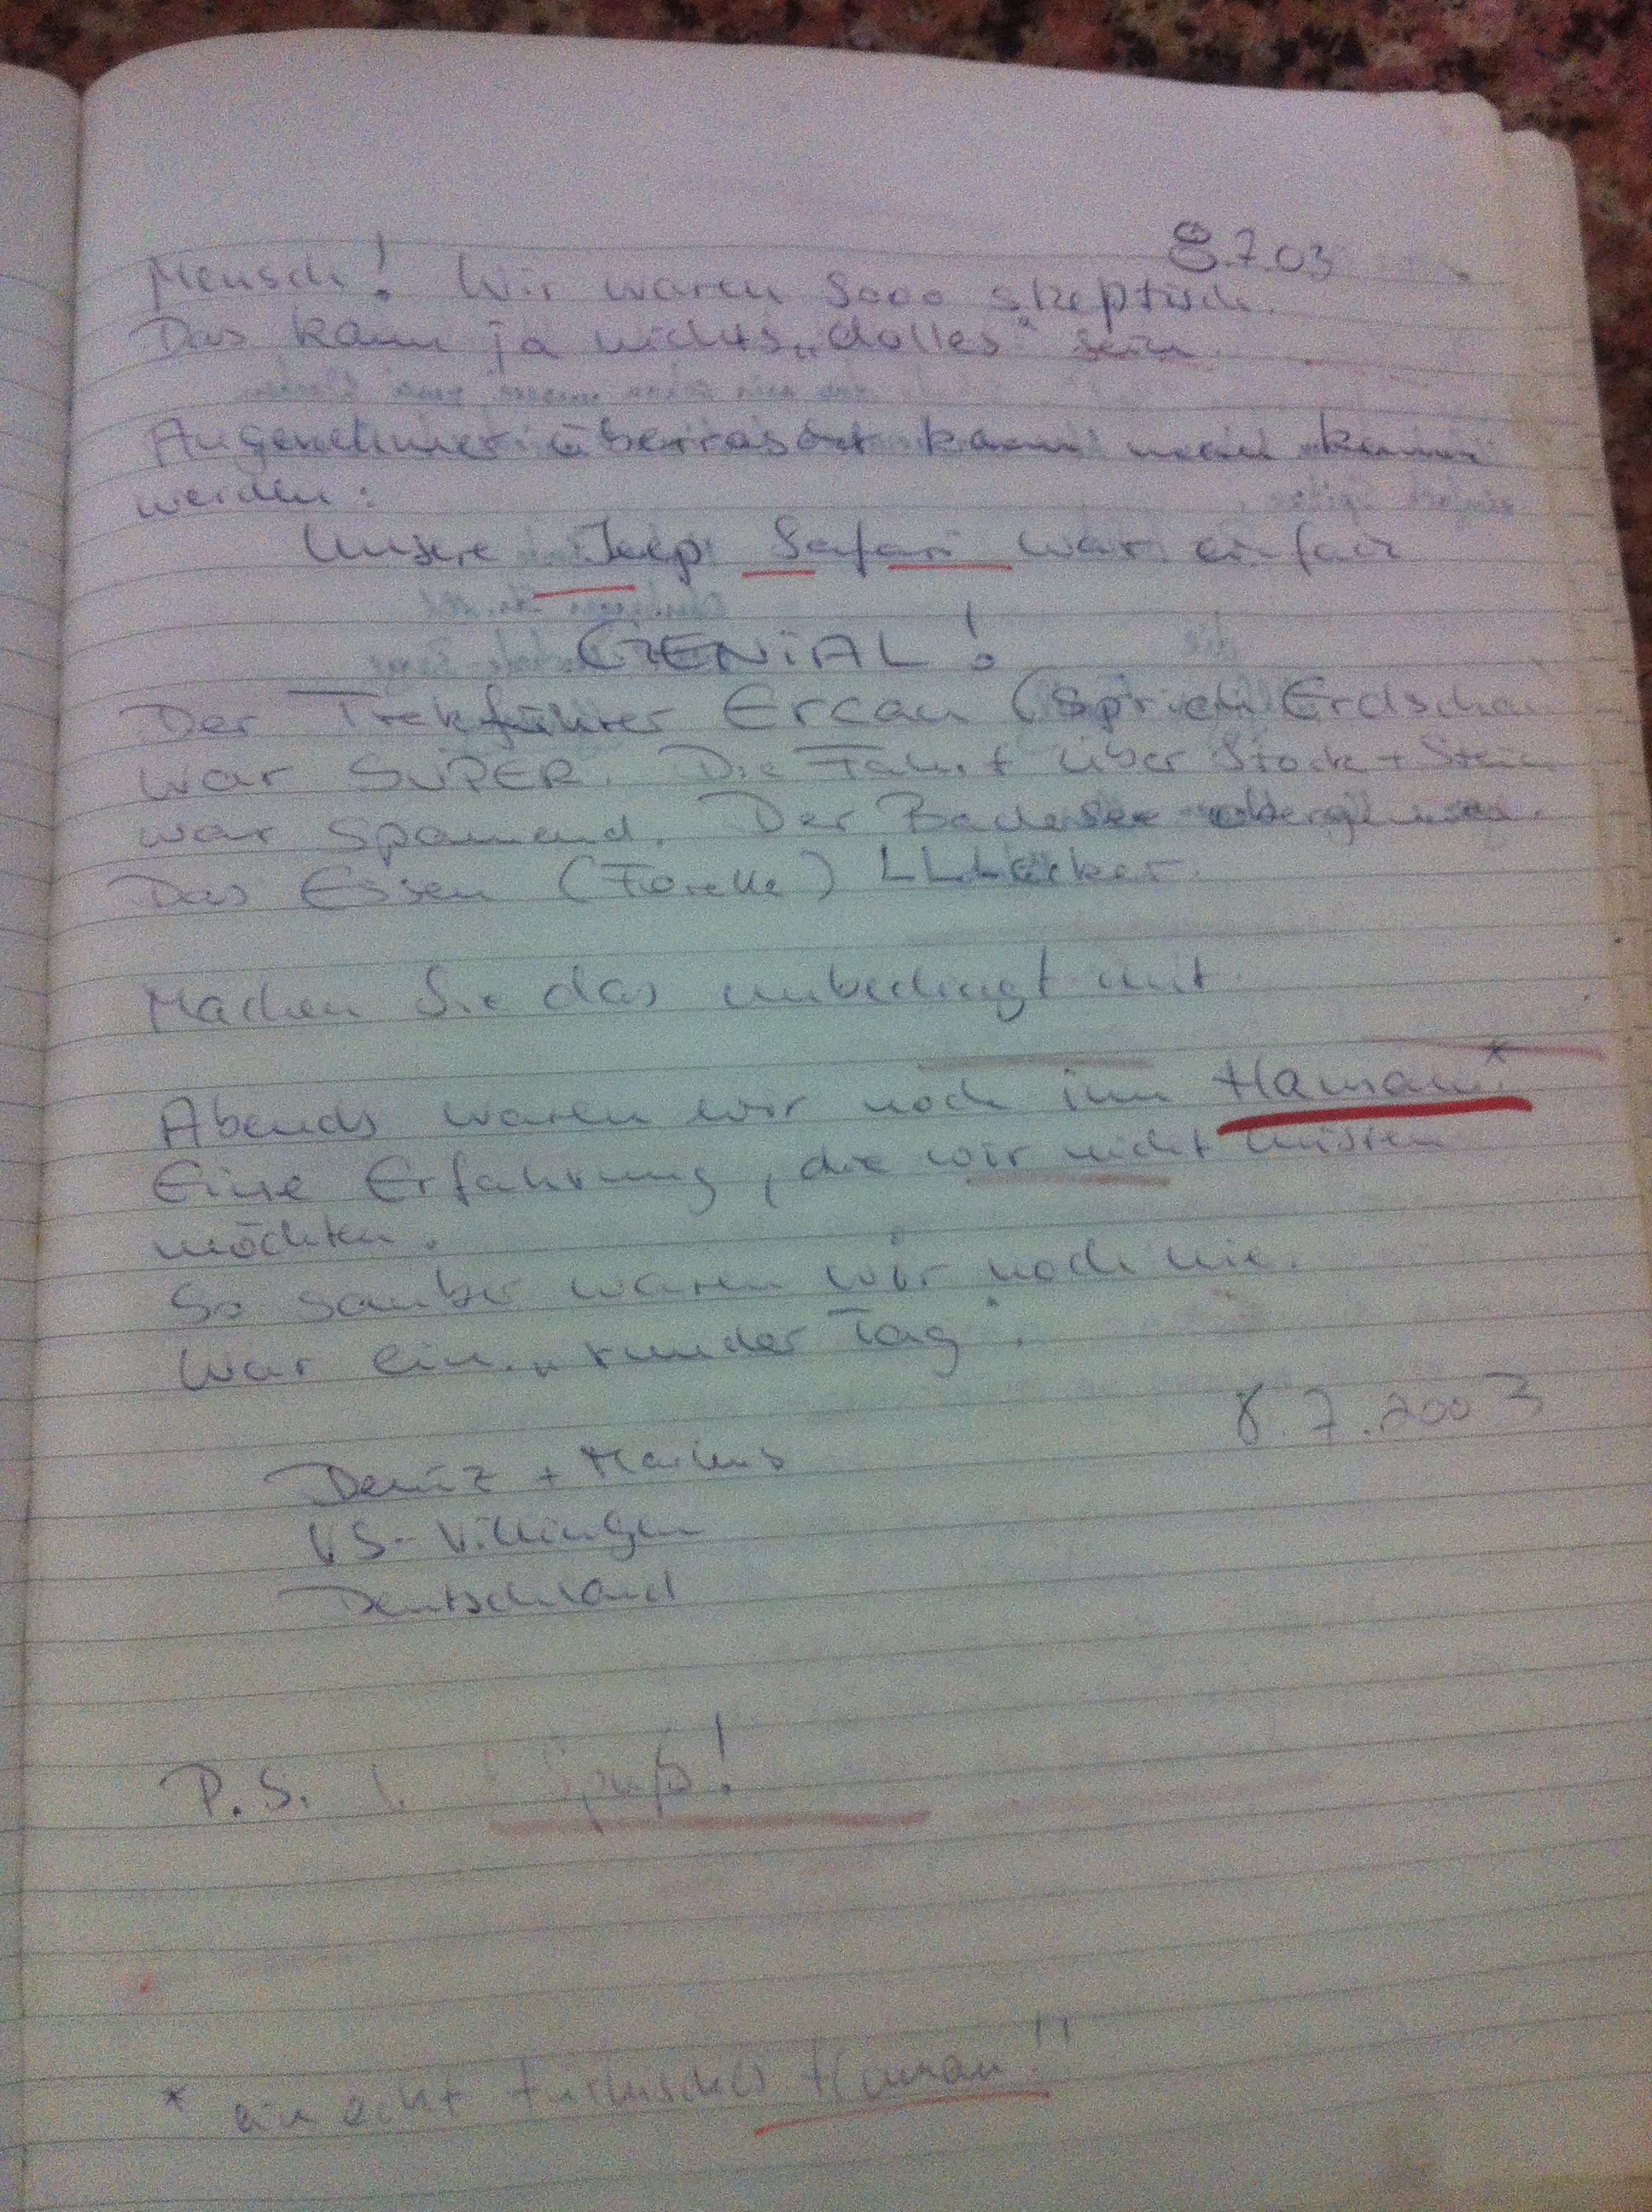 8.7.03
Mensch! Wir waren sooo skeptisch.
Das kann ja nichts „dolles“ sein.
Angenehmer überrascht kann man kaum
werden:
Unsere Jeep Safari war einfach
GENiAL!
Der Trekführer Ercan (sprich Erdschan
war SUPER. Die Fahrt über Stock + Stein
war spannend. Der Badesee
Das Essen (Forelle) LLLecker.
Machen Sie das unbedingt mit
Abends waren wir noch im Hamam*
Eine Erfahrung, die wir nicht missen
möchten.
So sauber waren wir noch nie.
War ein „runder Tag“.
8.7.2003
Deniz + Markus
VS-Villingen
Deutschland
P.S. Spaß!
* ein echt türkisches Hamam!!